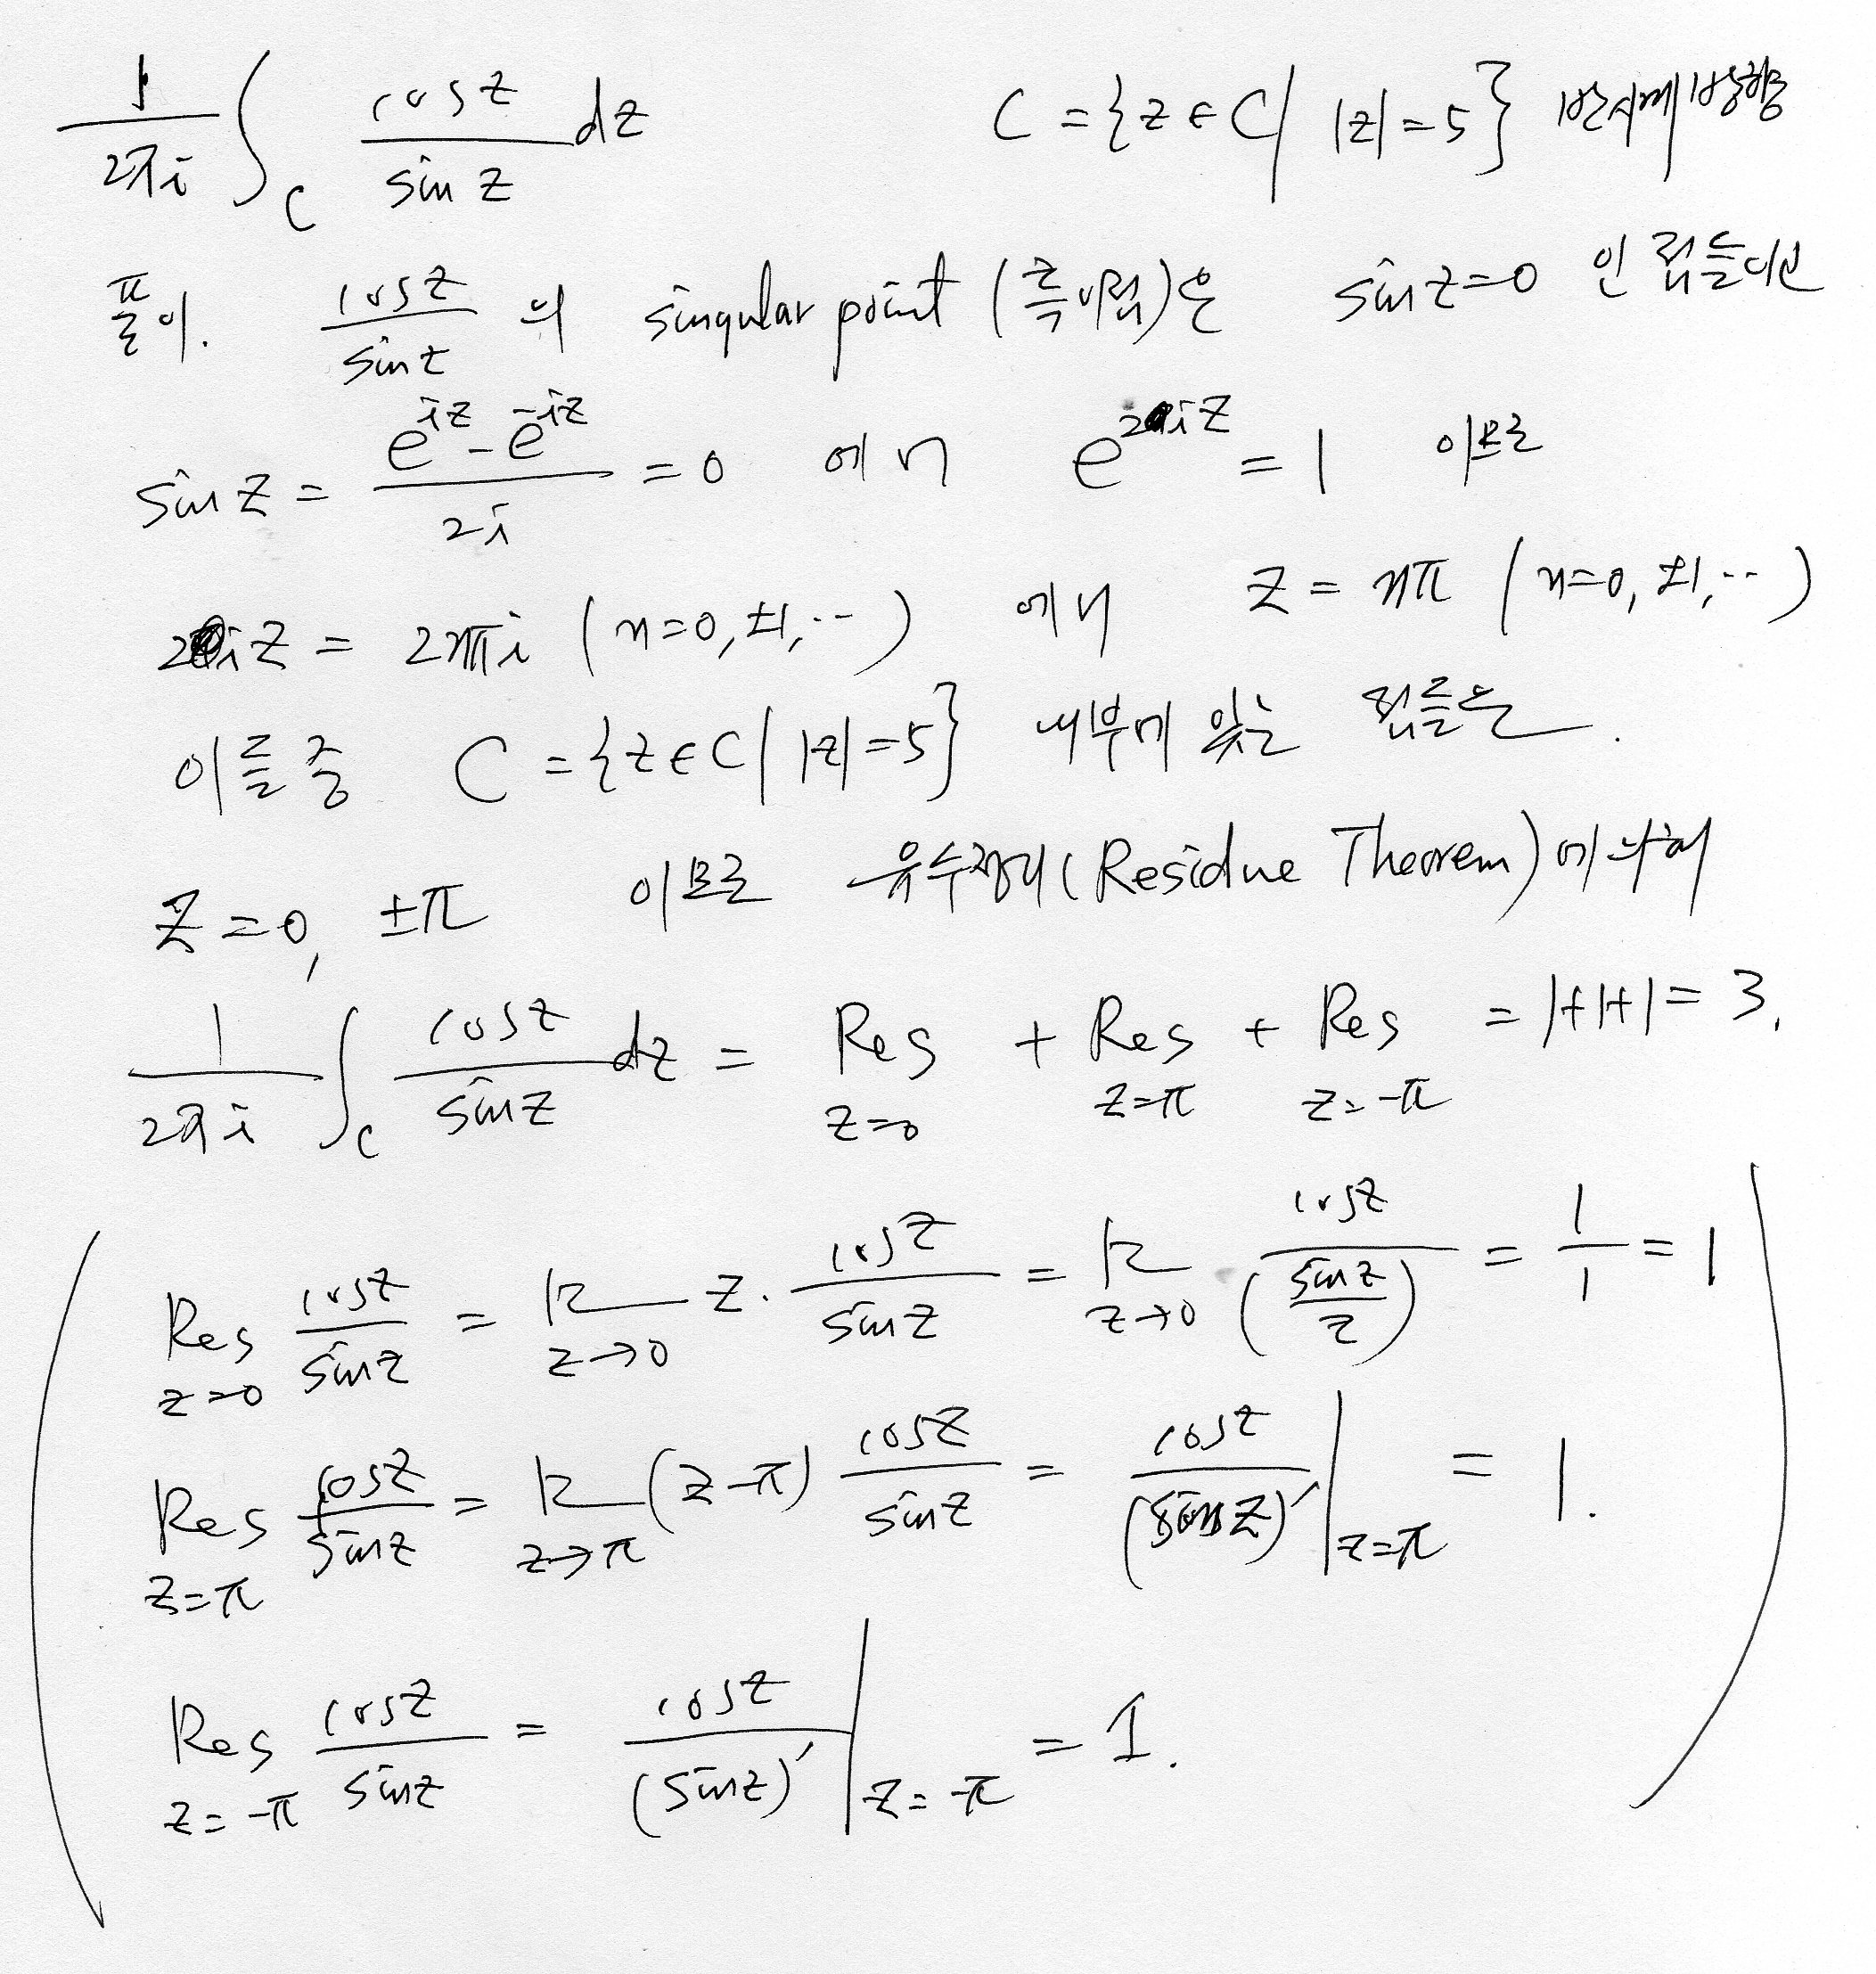 1/2πi ∫_C cos z/sin z dz C = {z ∈ C | |z| = 5} 반시계방향
풀이. cos z/sin z 의 singular point (특이점)은 sin z = 0 인 점들이고
sin z = (e^{iz} - e^{-iz})/2i = 0 에서 e^{2iz} = 1 이므로
2iz = 2nπi (n=0, ±1, ··) 에서 z = nπ (n=0, ±1, ··)
이들 중 C = {z ∈ C | |z| = 5} 내부에 있는 점들은.
z = 0, ±π 이므로 유수정리 (Residue Theorem) 에 의하여
1/2πi ∫_C cos z/sin z dz = Res_{z=0} + Res_{z=π} + Res_{z=-π} = 1+1+1 = 3.
Res_{z=0} cos z/sin z = lim_{z→0} z · cos z/sin z = lim_{z→0} cos z/(sin z/z) = 1/1 = 1
Res_{z=π} cos z/sin z = lim_{z→π} (z-π) cos z/sin z = cos z/(sin z)' |_{z=π} = 1.
Res_{z=-π} cos z/sin z = cos z/(sin z)' |_{z=-π} = 1.